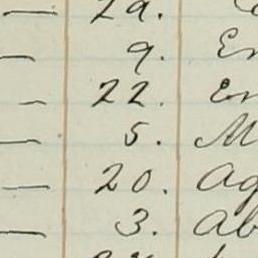 — 29.
— 9. En
— 22. En
— 5. M
— 20. Ag
— 3. Ab